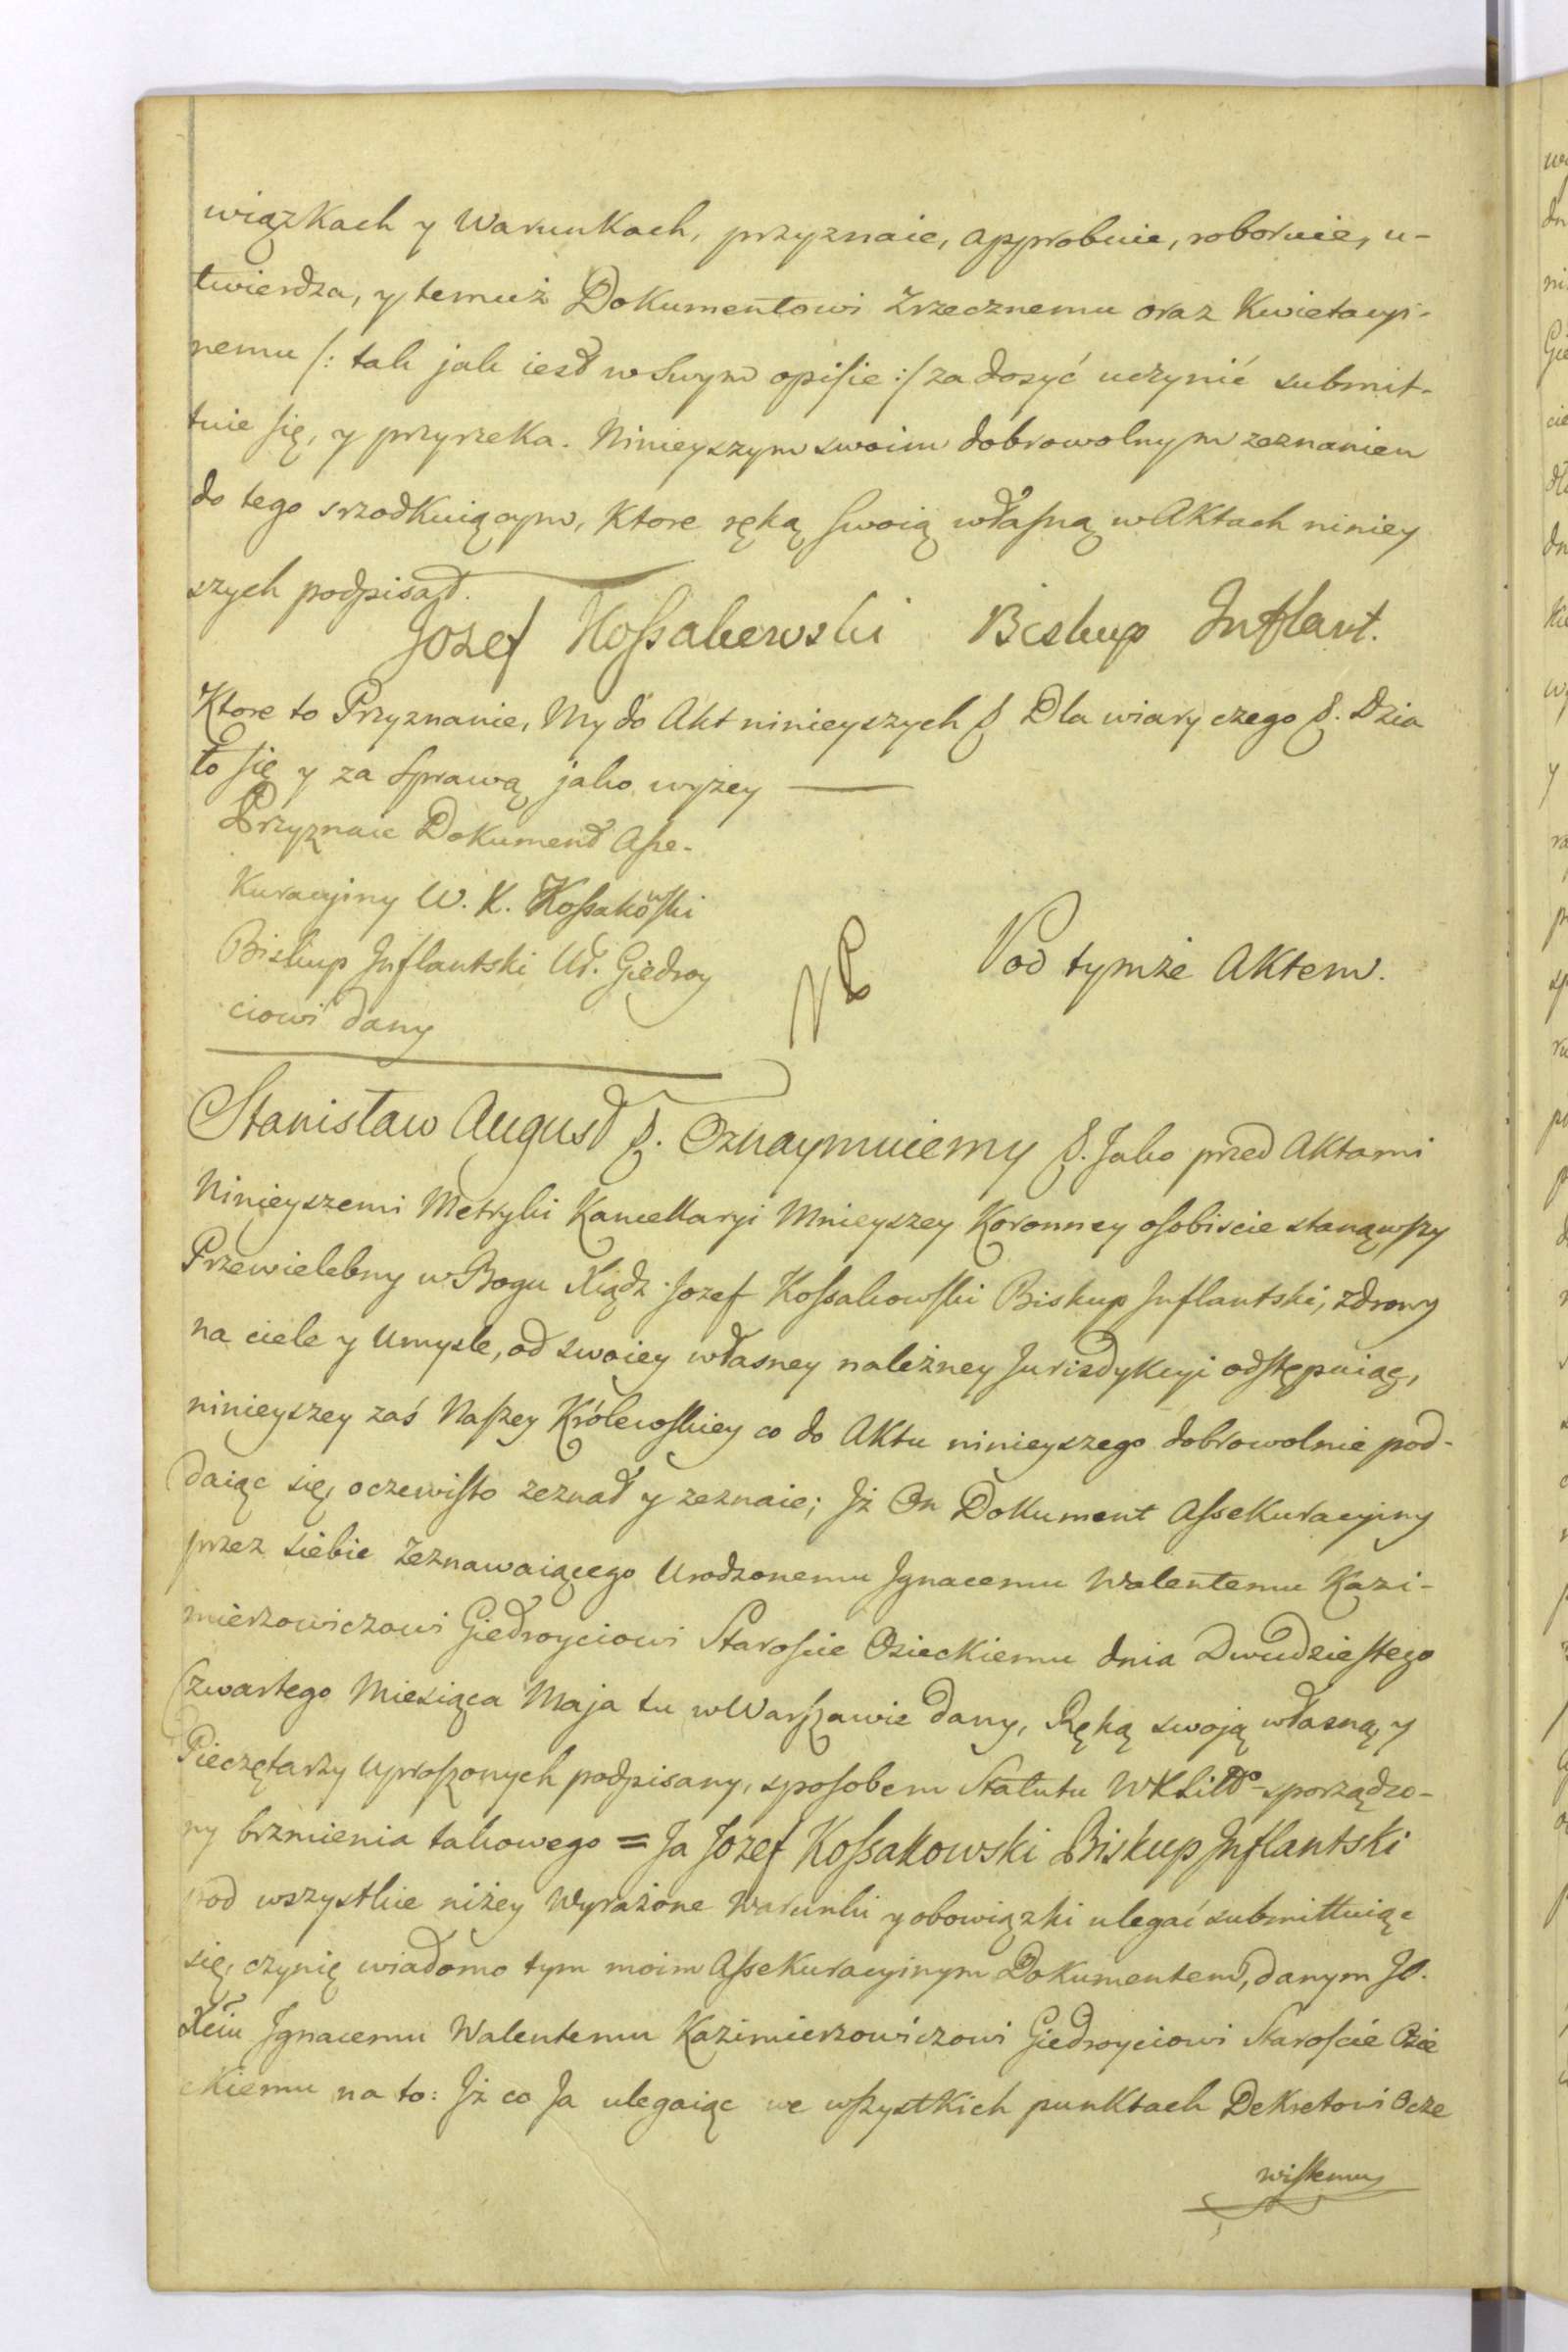 wiązkach y Warunkach, przyznaie, approbuie, roboruie, u-
twierdza, y temuż Dokumentowi Zrzecznemu oraz Kwietacyi-
nemu /: tak jak iest w Swym opiſie :/ zadosyć uczynić submit-
tuie ſię, y przyrzeka. Ninieyszym swoim dobrowolnym zeznaniem
do tego srzodkuiącym, Ktore ręką ſwoią właſną w Aktach niniey
szych podpisał.
Jozef Koſsakowski Biskup Inflant.
Ktore to Przyznanie, My do Akt ninieyszych &. Dla wiary czego &. Dzia
ło ſię y za Sprawą jako wyżey
Przyznaie Dokument Aſse-
kuracyiny W. X. Koſsakowſki
Biskup Inflantski Ur. Giedroy
ciowi dany
Pod tymże Aktem.
Stanisław August &. Oznaymuiemy &. Jako przed Aktami
Ninieyszemi Metryki Kancellaryi Mnieyszey Koronney oſobiscie stanąwſzy
Przewielebny w Bogu Xiądz Jozef Koſsakowſki Biskup Inflantski, zdrowy
na ciele y Umysle, od swoiey własney należney Jurisdykcyi odſtępuiąc,
ninieyszey zaś Naſzey Królewſkiey co do Aktu ninieyszego dobrowolnie pod-
daiąc się, oczewiſto zeznał y zeznaie; Jż On Dokument Aſsekuracyiny
przez siebie Zeznawaiącego Urodzonemu Jgnacemu Walentemu Kazi-
mierzowiczowi Giedroyciowi Staroſcie Osieckiemu dnia Dwudzieſtego
Czwartego Miesiąca Maja tu w Warſzawie dany, Ręką swoją własną, y
Pieczętarzy Uproſzonych podpisany, sposobem Statutu WXLitt⁰ sporządzo-
ny brzmienia takowego = Ja Jozef Koſsakowski Biskup Inflantski
pod wszystkie niżey Wyrażone Warunki y obowiązki ulegać submittuiąc
się, czynię wiadomo tym moim Aſsekuracyinym Dokumentem, danym JO.
Xciu Jgnacemu Walentemu Kazimierzowiczowi Giedroyciowi Staroſcie Osie
ckiemu na to: Jż co Ja ulegaiąc we wſzystkich punktach Dekretowi Ocze
wiſtemu